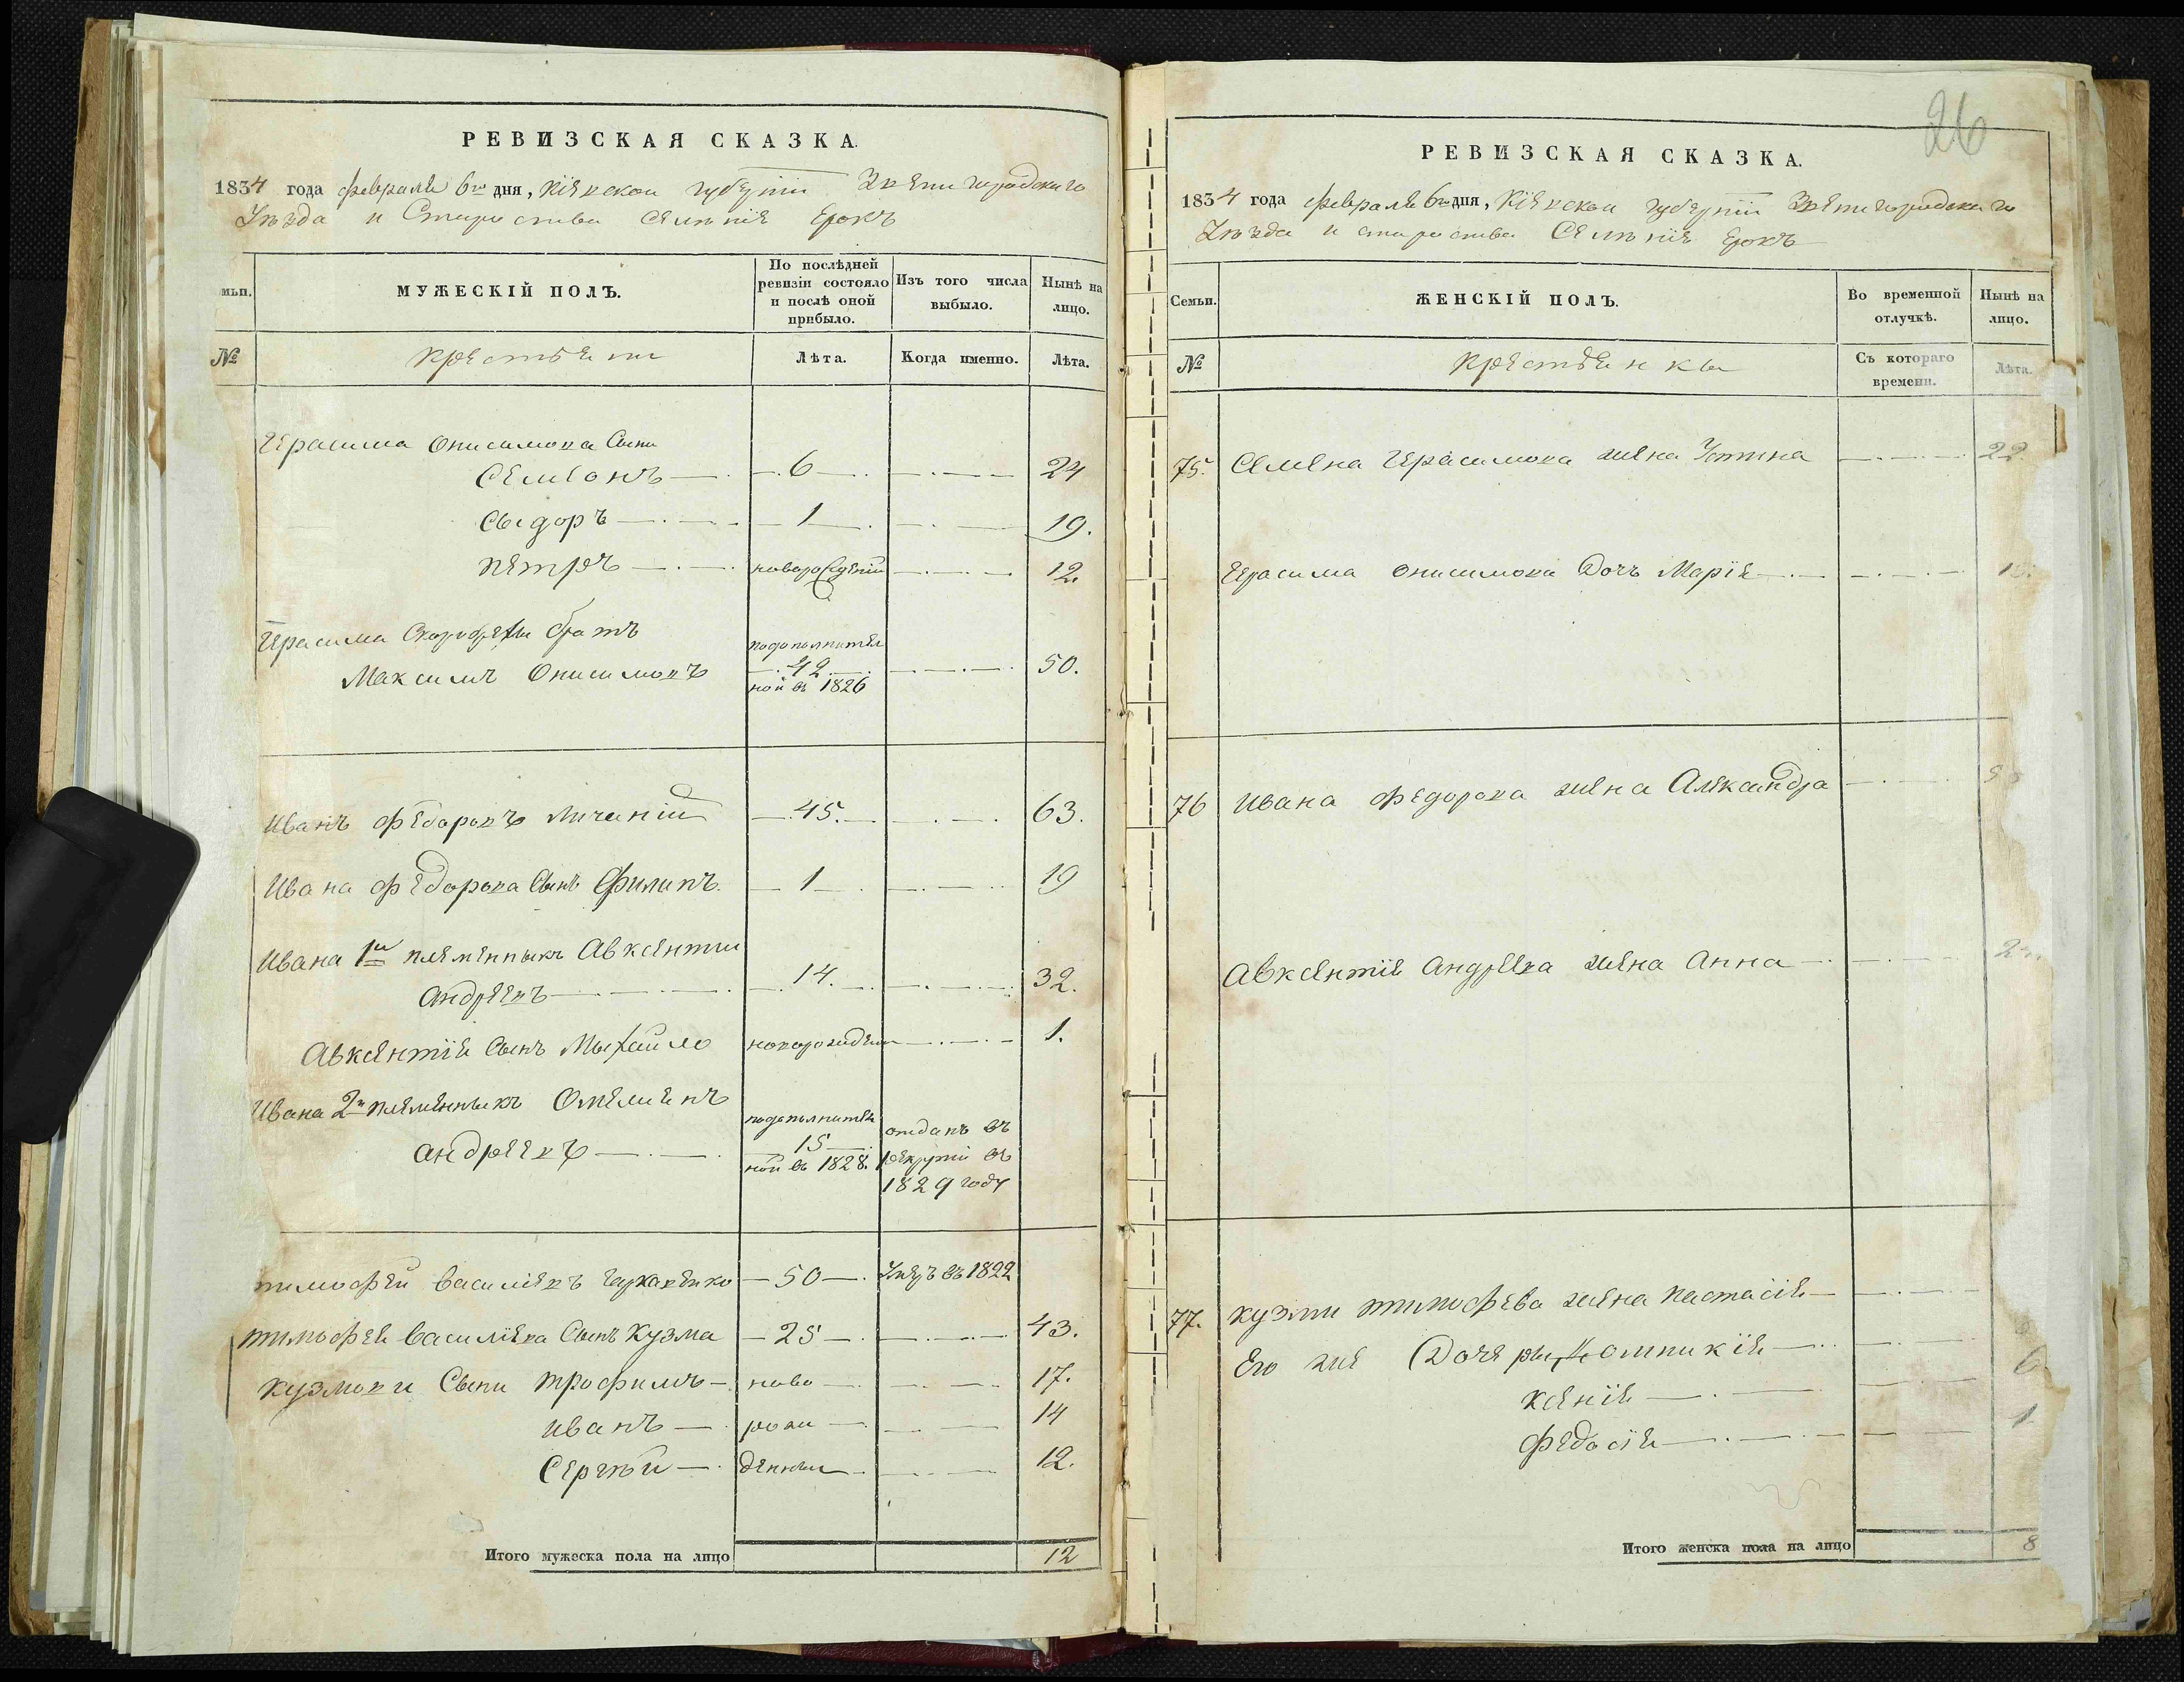 РЕВИЗСКАЯ СКАЗКА.
1834 года февраля 6го дня, Кіевской губерніи Звенигородскаго
Уѣзда и Староства Селѣнія Ерокъ
мьи.
МУЖЕСКІЙ ПОЛЪ.
По послѣдней ревизіи состояло и послѣ оной прибыло.
Изъ того числа выбыло.
Нынѣ на лицо.
№
Крестьяни
Лѣта.
Когда именно.
Лѣта.
Герасима Онисимова Сыни
Семіонъ 6 24
Сыдоръ 1 19.
Петръ новорожденій 12.
Герасима братъ подополнител
Максимъ Онисимовъ 42 50.
ной въ 1826
Иванъ Федоровъ 45. 63.
Ивана Федорова Сынъ Филипъ. 1 19
Ивана 1й племѣнныкъ Авксентіи
Андреевъ 14. 32.
Авксентія Сынъ Мыхайло новорожден 1.
Ивана 2й племѣнныкъ Омелиянъ подополнител отданъ въ
Андреевъ 15 рекруты въ
ной въ 1828. 1829 году
Тимофей Василіевъ 50 Умеръ въ 1822
Тимофея Василіева Сынъ Кузма 25 43.
Кузмови Сыни Трофимъ ново 17.
Иванъ рож 14
Сергѣй денны 12.
Итого мужеска пола на лицо 12
26
РЕВИЗСКАЯ СКАЗКА.
1834 года февраля 6го дня, Кіевской губерніи Звенигородскаго
Уѣзда и староства Селѣнія Ерокъ
Семьи.
ЖЕНСКІЙ ПОЛЪ.
Во временной отлучкѣ.
Нынѣ на лицо.
№
Крестьянкы
Съ котораго времени.
Лѣта.
75. Семена Герасимова жена Устина 22
Герасима Онисимова Дочь Марія
76 Ивана Федорова жена Александра
Авксентія Андреева жена Анна
77. Кузми Тимофева жена Настасія
Его же Дочеры
Ксенія 6
Федосія 1
Итого женска пола на лицо 8